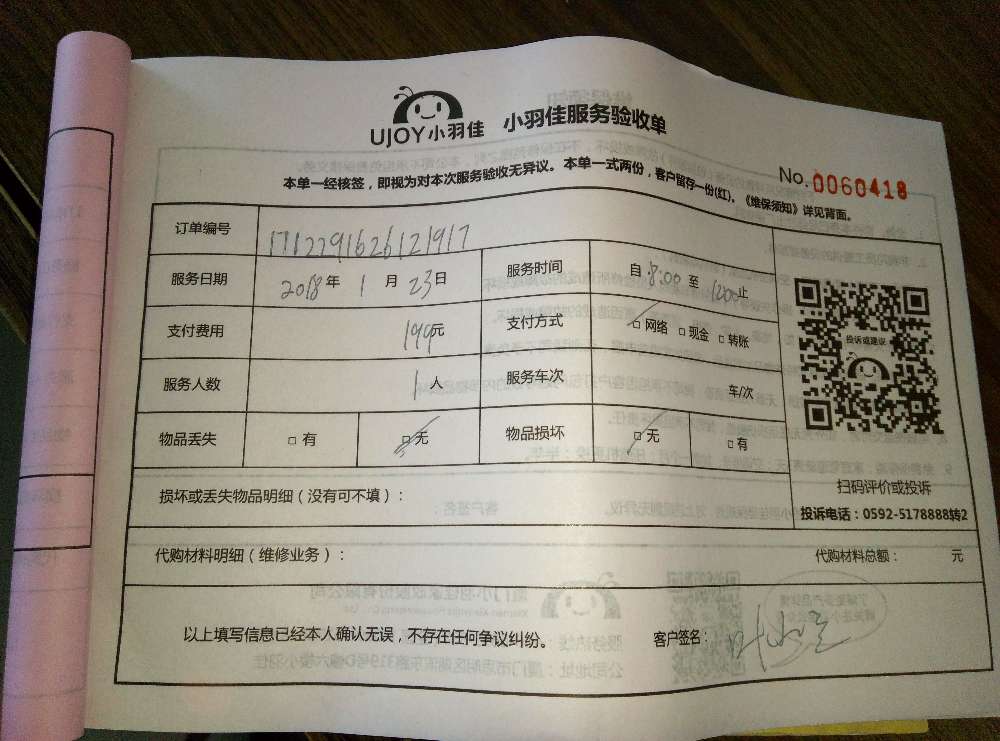 UJOY小羽佳 小羽佳服务验收单
No.0060418
本单一经核签，即视为对本次服务验收无异议。本单一式两份，客户留存一份(红)。《维保须知》详见背面。
订单编号 1712291626121917
服务日期 2018年 1月 23日 服务时间 自 8:00 至 1200止
支付费用 199元 支付方式 □网络 □现金 □转账
服务人数 1人 服务车次 车/次
物品丢失 □有 □无 物品损坏 □无 □有
投诉或建议
扫码评价或投诉
投诉电话：0592-5178888转2
损坏或丢失物品明细（没有可不填）：
代购材料明细（维修业务）： 代购材料总额： 元
以上填写信息已经本人确认无误，不存在任何争议纠纷。 客户签名：